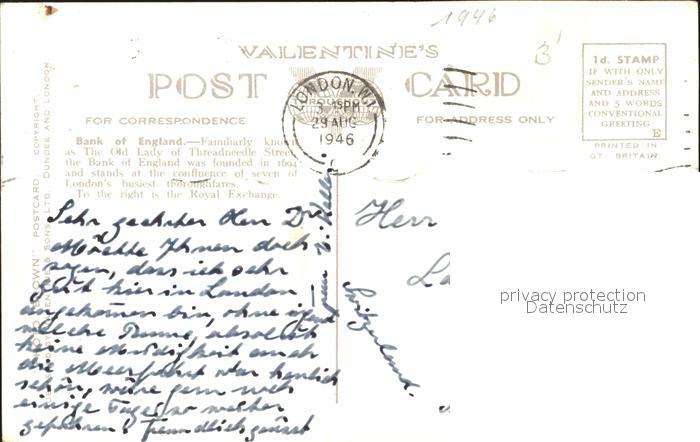 1946
3'
VALENTINE'S
POST CARD
FOR CORRESPONDENCE
FOR ADDRESS ONLY
1d. STAMP
IF WITH ONLY
SENDER'S NAME
AND ADDRESS
AND 5 WORDS
CONVENTIONAL
GREETING
E
PRINTED IN
GT. BRITAIN
LONDON. W.1
3 PM
29 AUG
1946
Bank of England.—Familiarly known
as The Old Lady of Threadneedle Street
the Bank of England was founded in 1694
and stands at the confluence of seven of
London's busiest thoroughfares.
To the right is the Royal Exchange.
Sehr geehrter Herr Dr
Möchte Ihnen doch
sagen, dass ich sehr
gut hier in London
angekommen bin, ohne irgend
welche absolut
keine Müdigkeit auch
die Meerfahrt war herrlich
schön, wäre gern noch
einige Tage so weiter
gefahren! freundlich grüsst
Herr
La
Switzerland.
privacy protection
Datenschutz
POSTCARD COPYRIGHT
SONS LTD. DUNDEE AND LONDON